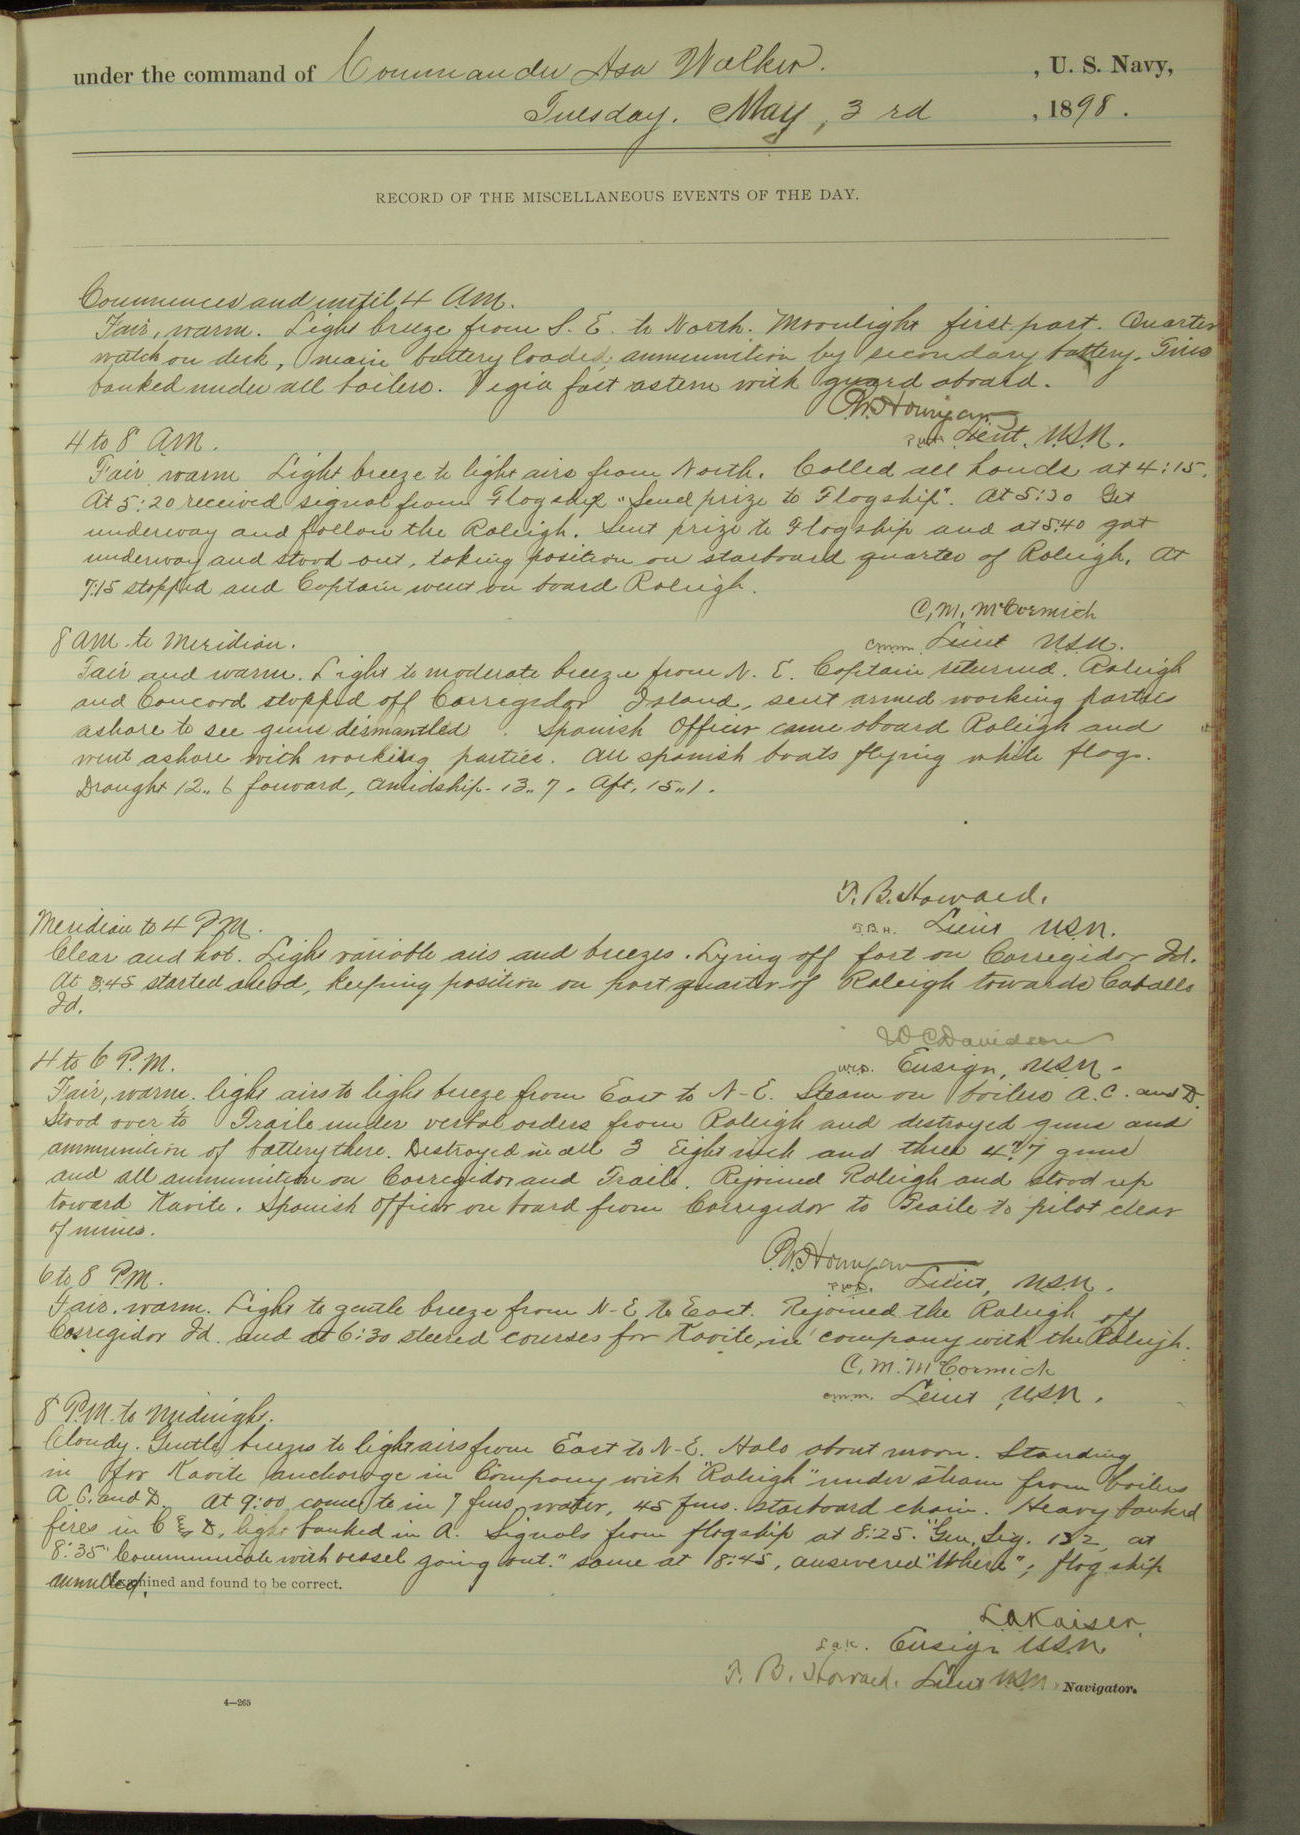 under the command of Commander Asa Walker. , U. S. Navy,
Tuesday. May, 3 rd , 1898.
RECORD OF THE MISCELLANEOUS EVENTS OF THE DAY.
Commences and until 4 A.M.
Fair, warm. Light breeze from S. E. to North. Moonlight first part. Quarter
watch on deck, main battery loaded, ammunition by secondary battery. Fires
banked under all boilers. Vegia fast astern with guard aboard.
P.W. Hourigan
P.W.H. Lieut. U.S.N.
4 to 8 A.M.
Fair, warm Light breeze to light airs from North. Called all hands at 4:15.
At 5:20 received signal from Flagship "Send prize to Flagship". At 5:30 Get
underway and follow the Raleigh. Sent prize to Flagship and at 5:40 got
underway and stood out, taking position on starboard quarter of Raleigh. At
7:15 stopped and Captain went on board Raleigh.
C. M. McCormick
CMM. Lieut U.S.N.
8 AM to Meridian.
Fair and warm. Light to moderate breeze from N. E. Captain returned. Raleigh
and Concord stopped off Corregidor Island, sent armed working parties
ashore to see guns dismantled. Spanish Officer came aboard Raleigh and
went ashore with working parties. All spanish boats flying white flag.
Draught 12,, 6 forward, amidship - 13,, 7. Aft, 15,, 1.
T. B. Howard.
T.B.H. Lieut U.S.N.
Meridian to 4 P.M.
Clear and hot. Light variable airs and breezes. Lying off fort on Corregidor Id.
At 3:45 started ahead, keeping position on port quarter of Raleigh towards Caballo
Id.
W C Davidson
WCD. Ensign, U.S.N.
4 to 6 P.M.
Fair, warm. light airs to light breeze from East to N-E. Steam on boilers A. C. and D.
Stood over to Fraile under verbal orders from Raleigh and destroyed guns and
ammunition of battery there. Destroyed in all 3 Eight inch and three 4".7 guns
and all ammunition on Corregidor and Fraile. Rejoined Raleigh and stood up
toward Kavite. Spanish Officer on board from Corregidor to Fraile to pilot clear
of mines.
P.W. Hourigan
P.W.H. Lieut, U.S.N.
6 to 8 PM.
Fair. warm. Light to gentle breeze from N-E to East. Rejoined the Raleigh off
Corregidor Id. and at 6:30 steered courses for Kavite, in company with the Raleigh.
C. M. McCormick
CMM. Lieut U.S.N.
8 P.M. to Midnight.
Cloudy. Gentle breezes to light airs from East to N-E. Halo about moon. Standing
in for Kavite anchorage in Company with "Raleigh" under steam from boilers
A C. and D. At 9:00 came to in 7 fms. water, 45 fms. starboard chain. Heavy banked
fires in C & D, light banked in A. Signals from flagship at 8:25. "Gen. Sig. 132, at
8:35 "Communicate with vessel going out." same at 8:45, answered "Where"; flag ship
annulled.
Examined and found to be correct.
L A Kaiser.
L.A.K. Ensign U.S.N.
T. B. Howard. Lieut U.S.N. Navigator.
4—265